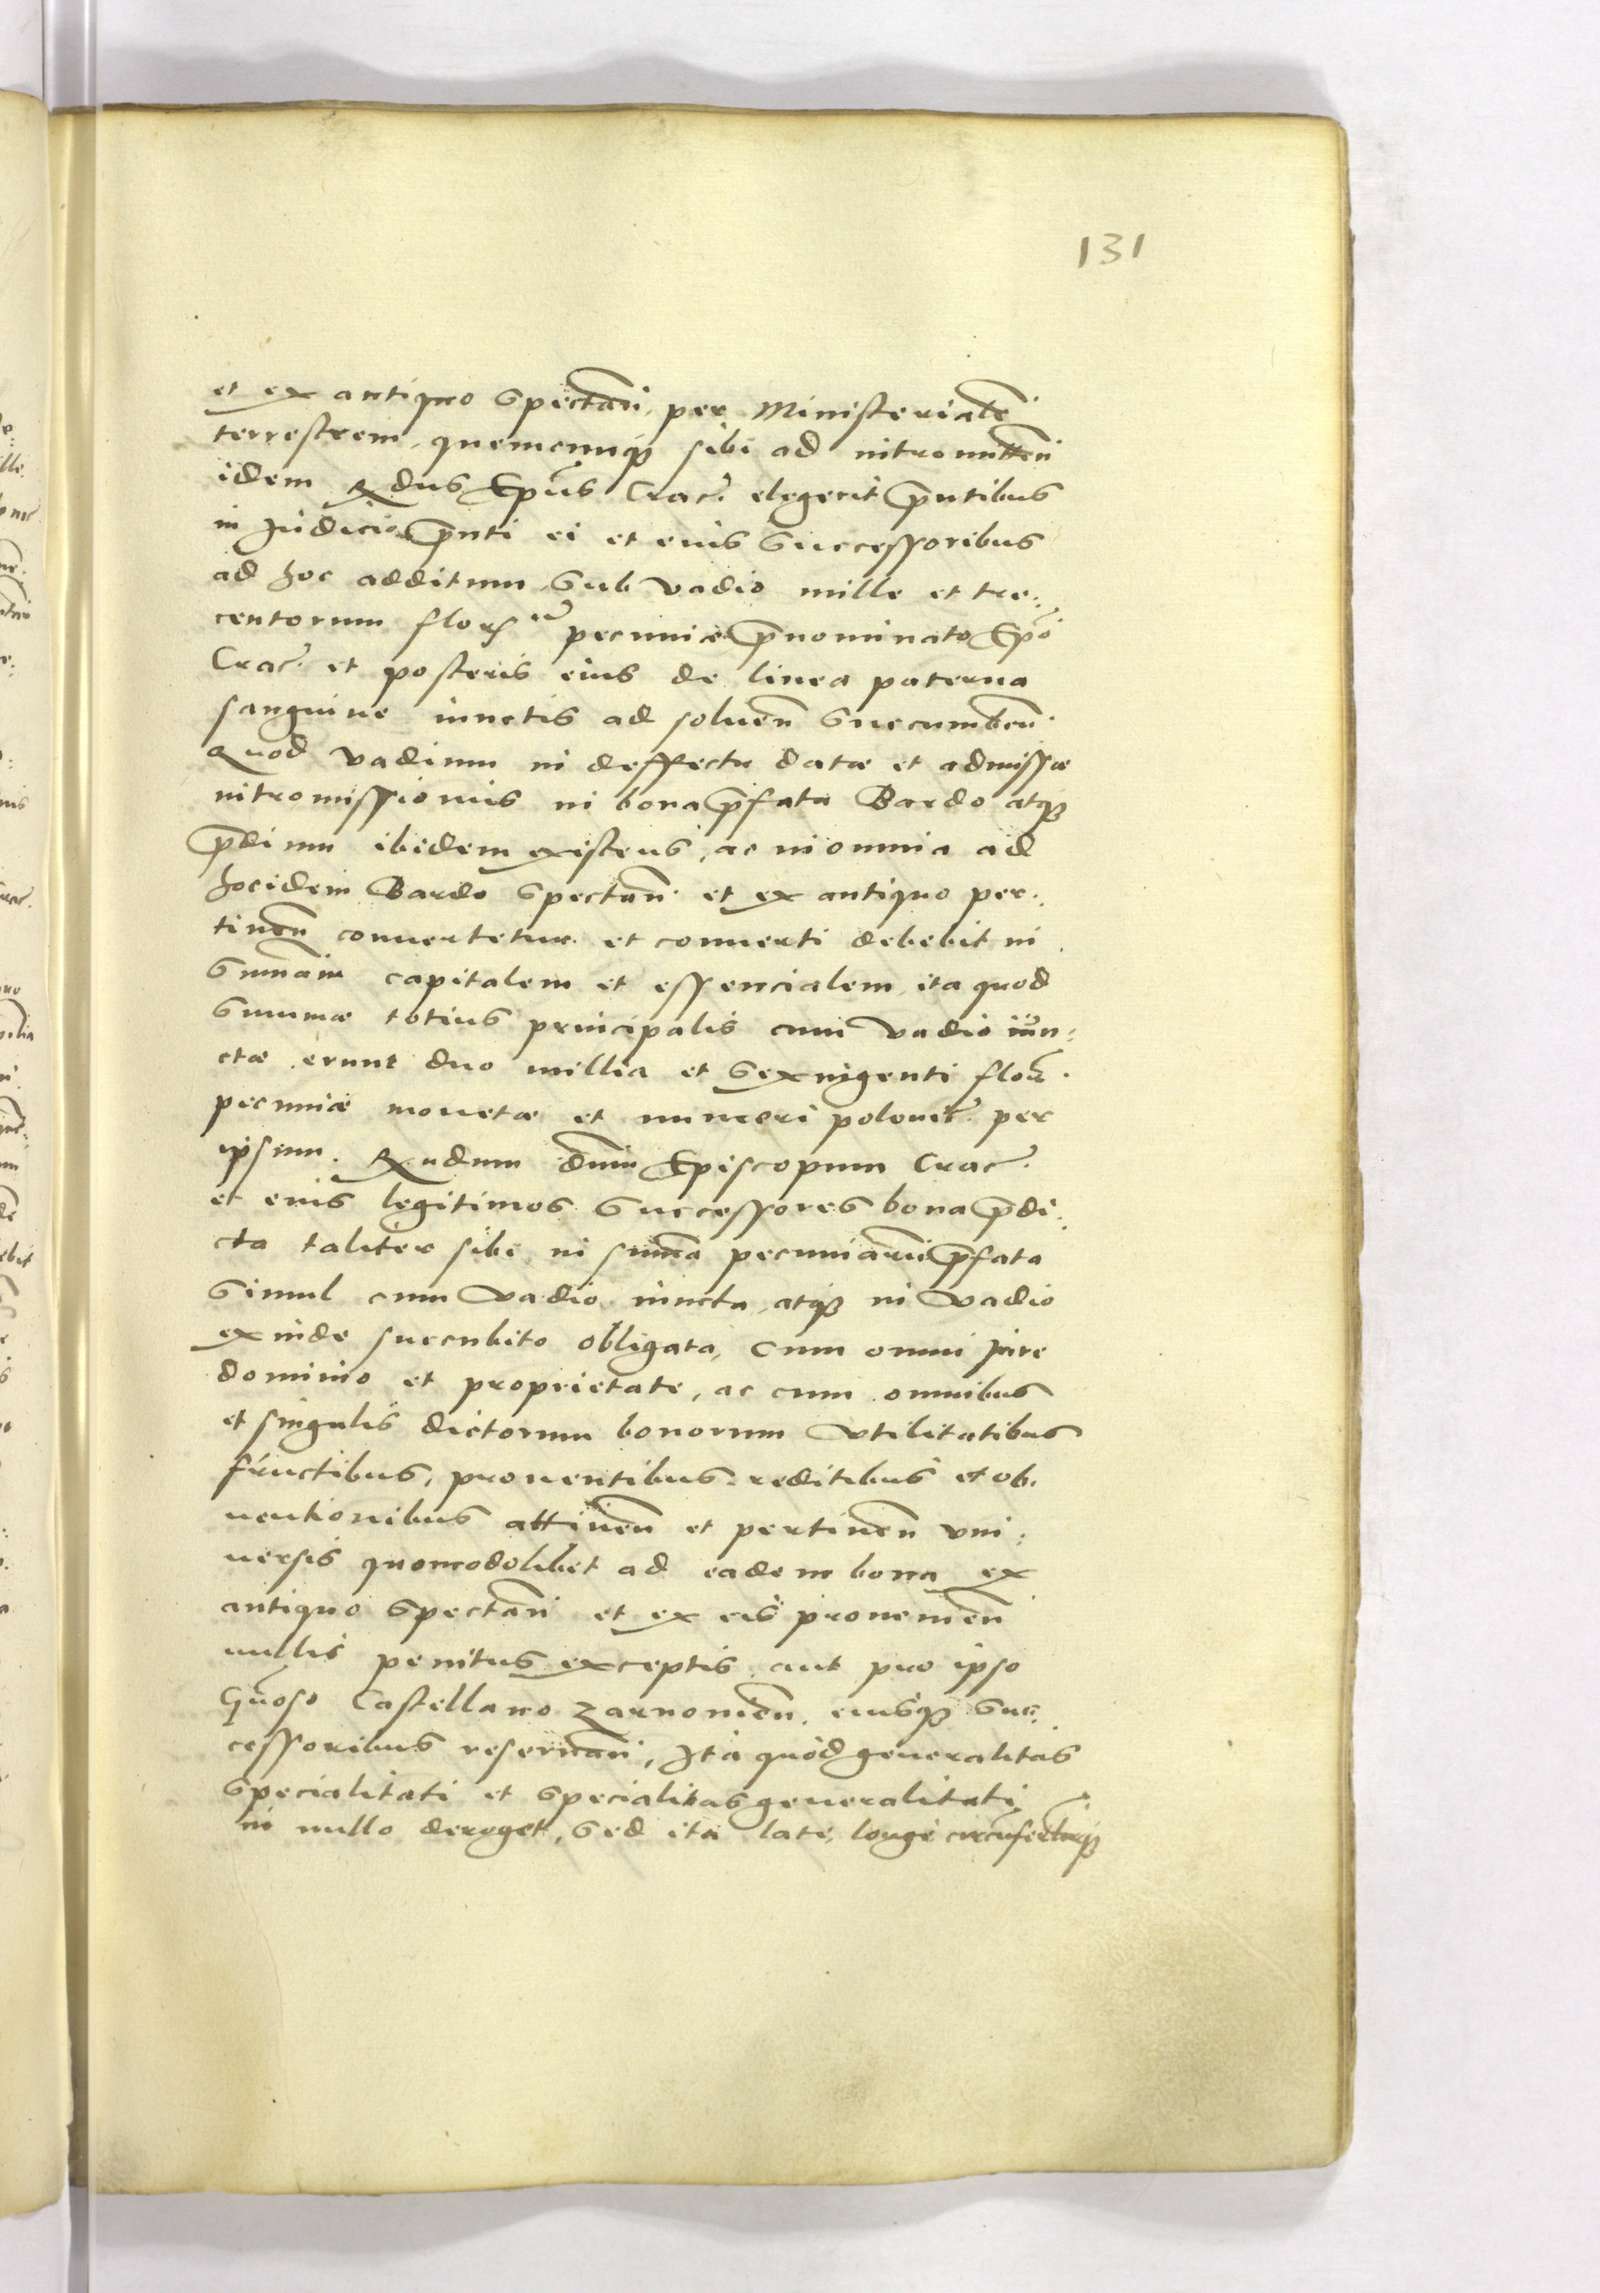 131
et ex antiquo spectan̄. per Ministerialē
terrestrem, quemcunq₃ sibi ad intromitten̄
idem Rdus Epūs Crac̄. elegerit p̄ntibus
in Judicio p̄nti ei et eius successoribus
ad hoc additum, sub vadio mille et tre:
centorum flor pecuniæ p̄nominato Epō
Crac̄. et posteris eius de linea paterna
sanguine iunctis ad soluen̄ succumben̄.
Quod vadium in deffectu datæ et admissæ
intromissionis in bona p̄fata Bardo atq₃
p̄dium ibidem existens, ac in omnia ad
hocidem Bardo spectan̄ et ex antiquo per:
tinen̄ conuertetur et conuerti debebit in
sum̄am capitalem et essencialem, ita quod
summæ totius principalis cum vadio iun:
ctæ erunt duo millia et sexingenti flor̄.
pecuniæ monetæ et numeri polonic̄. per
ipsum. Rndum dn̄m Episcopum Crac̄.
et eius legitimos successores bona p̄di:
cta taliter sibi in sum̄a pecuniarū p̄fata
simul cum vadio iuncta, atq₃ in vadio
exinde succubito obligata, cum omni jure
dominio et proprietate, ac cum omnibus
et singulis dictorum bonorum vtilitatibus
fructibus, prouentibus reditibus et ob:
uentionibus attinen̄ et pertinen̄ vni:
uersis quomodolibet ad eadem bona ex
antiquo spectan̄ et ex eis prouenien̄
nullis penitus exceptis aut pro ipso
Gn̄oso Castellano Zarnouien̄. eiusq₃ suc:
cessoribus reseruan̄, Ita quòd generalitas
specialitati et specialitas generalitati
in nullo deroget, sed ita latè, longè circūferēterq₃